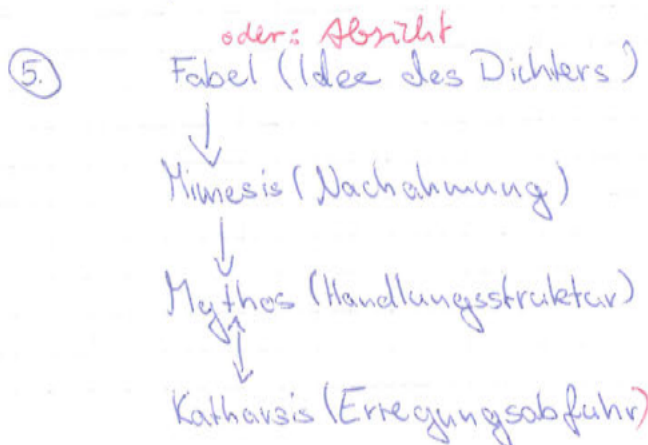 oder: Absicht
5. Fabel (Idee des Dichters)
Mimesis (Nachahmung)
Mythos (Handlungsstruktur)
Katharsis (Erregungsabfuhr)